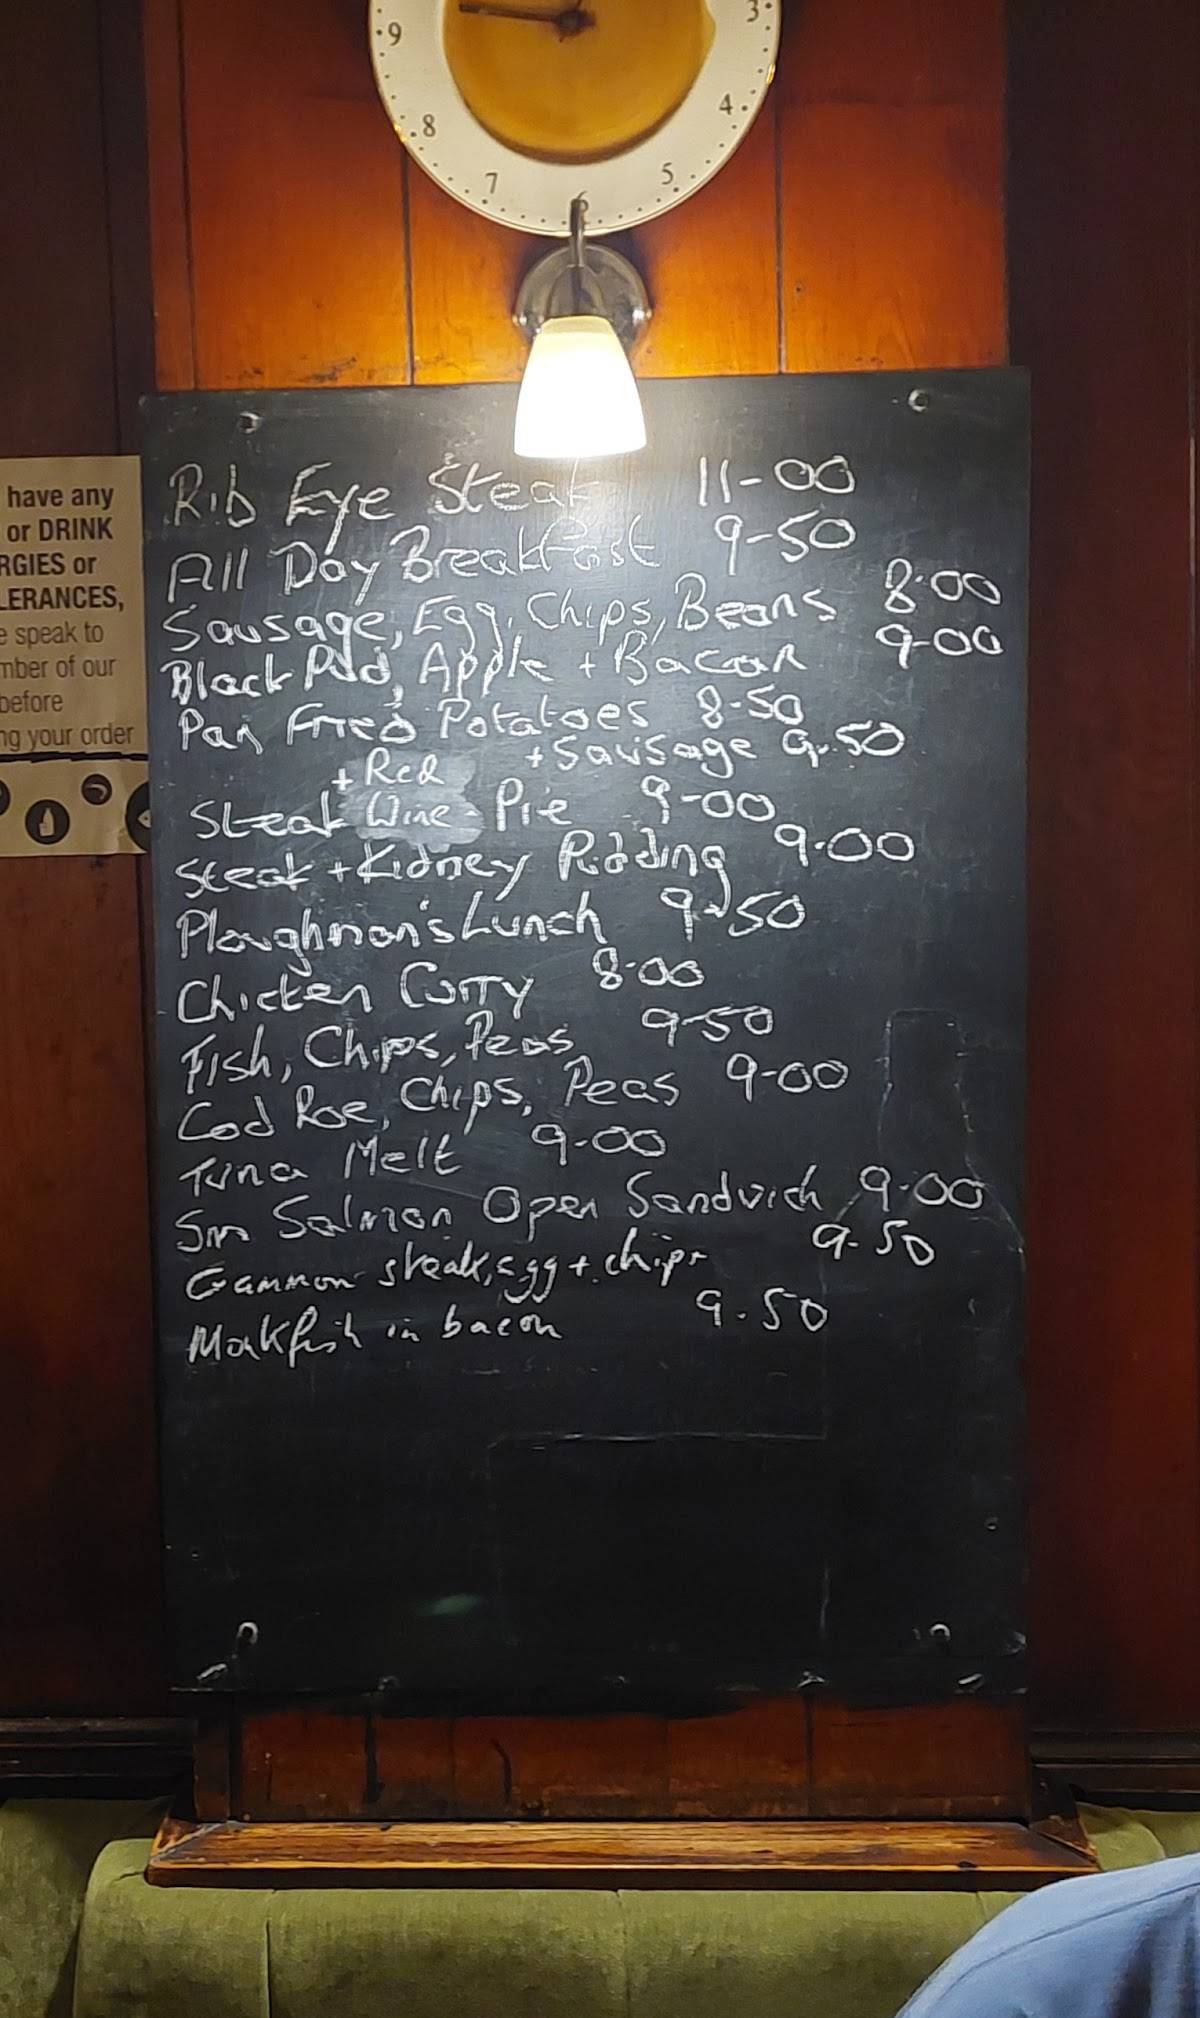 9
3
8
4
7
5
6
Rib Eye Steak 11-00
All Day Breakfast 9-50
Sausage, Egg, Chips, Beans 8.00
Black Pud, Apple + Bacon 9-00
Pan Fried Potatoes 8-50
+ Sausage 9.50
+ Red
Steak Wine Pie 9-00
Steak + Kidney Pudding 9.00
Ploughman's Lunch 9-50
Chicken Curry 8.00
Fish, Chips, Peas 9-50
Cod Roe, Chips, Peas 9-00
Tuna Melt 9-00
Sm Salmon Open Sandwich 9.00
Gammon steak, egg + chips 9.50
Monkfish in bacon 9.50
have any
or DRINK
RGIES or
LERANCES,
e speak to
mber of our
before
ng your order